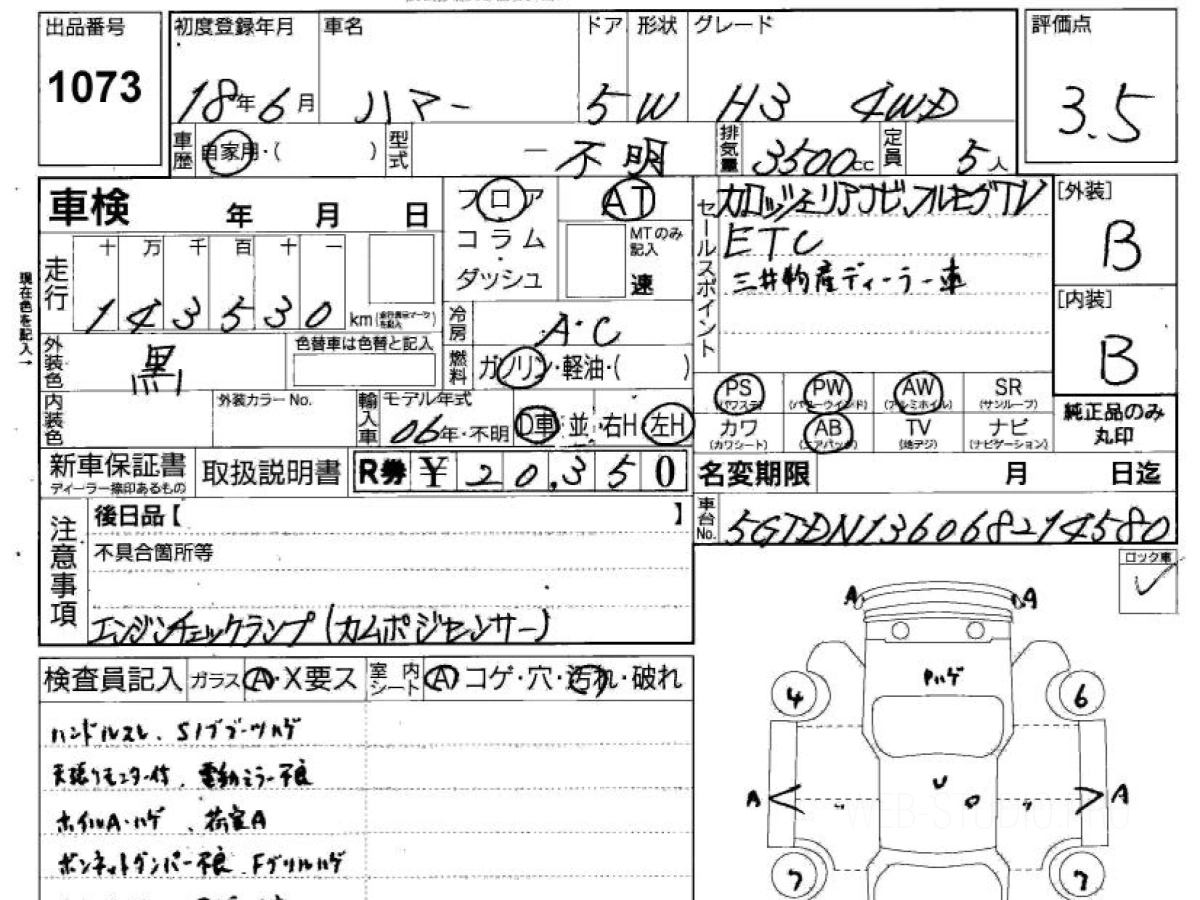 出品番号 初度登録年月 車名 ドア 形状 グレード 評価点
1073 18年6月 ハマー 5 W H3 4WD 3.5
車歴 自家用・( ) 型式 ー不明 排気量 3500cc 定員 5人
車検 年 月 日 フロア AT セールスポイント カロッツェリアナビ、フルセグTV [外装]
コラム MTのみ記入 ETC B
走行 十 万 千 百 十 一 ダッシュ 速 三井物産ディーラー車
現在色を記入→ 143530 km [内装]
冷房 A・C B
外装色 黒 色替車は色替と記入 燃料 ガソリン・軽油・( )
PS (パワステ) PW (パワーウインド) AW (アルミホイル) SR (サンルーフ)
内装色 外装カラーNo. 輸入車 モデル年式 06年・不明 D車 並 右H・左H カワ (カワシート) AB (エアバッグ) TV (地デジ) ナビ (ナビゲーション) 純正品のみ丸印
新車保証書 ディーラー捺印あるもの 取扱説明書 R券 ¥20,350 名変期限 月 日迄
注意事項 後日品【 】 車台No. 5GTDN136068214580
不具合箇所等 ロック車
エンジンチェックランプ(カムポジセンサー)
A A
検査員記入 ガラス A・X要ス 室内シート A コゲ・穴・汚れ・破れ
ハゲ
ハンドルスレ、S/ブブーツハゲ 4 6
天張りモニター付、電動ミラー不良
ホイルA・ハゲ、荷室A A A
ボンネットダンパー不良、Fグリルハゲ
7 7
WEB-STUDIO.PRO